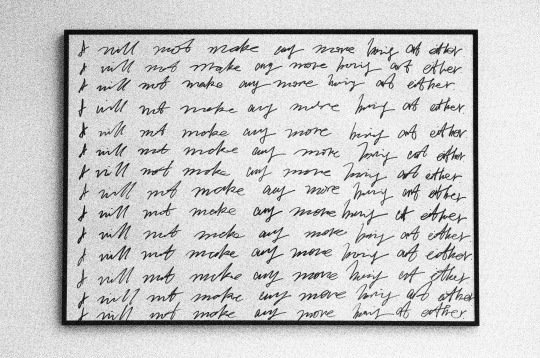 I will not make any more boring art either
I will not make any more boring art either
I will not make any more boring art either
I will not make any more boring art either
I will not make any more boring art either
I will not make any more boring art either
I will not make any more boring art either
I will not make any more boring art either
I will not make any more boring art either
I will not make any more boring art either
I will not make any more boring art either
I will not make any more boring art either
I will not make any more boring art either
I will not make any more boring art either